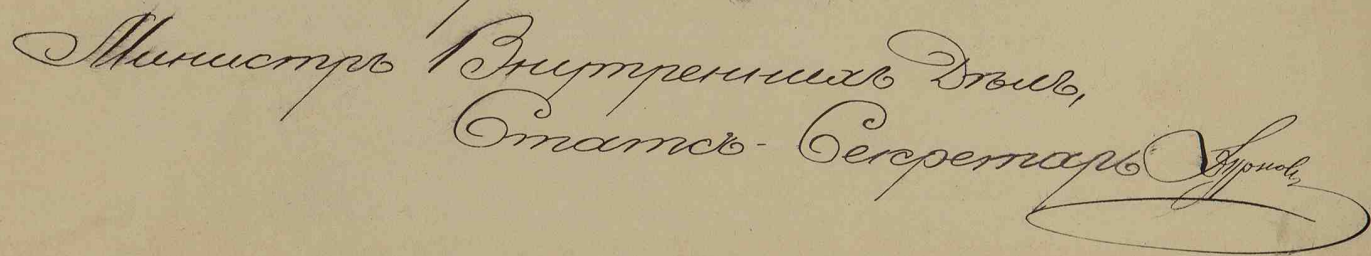 Министръ Внутреннихъ Дѣлъ,
Статсъ-Секретарь Дурново